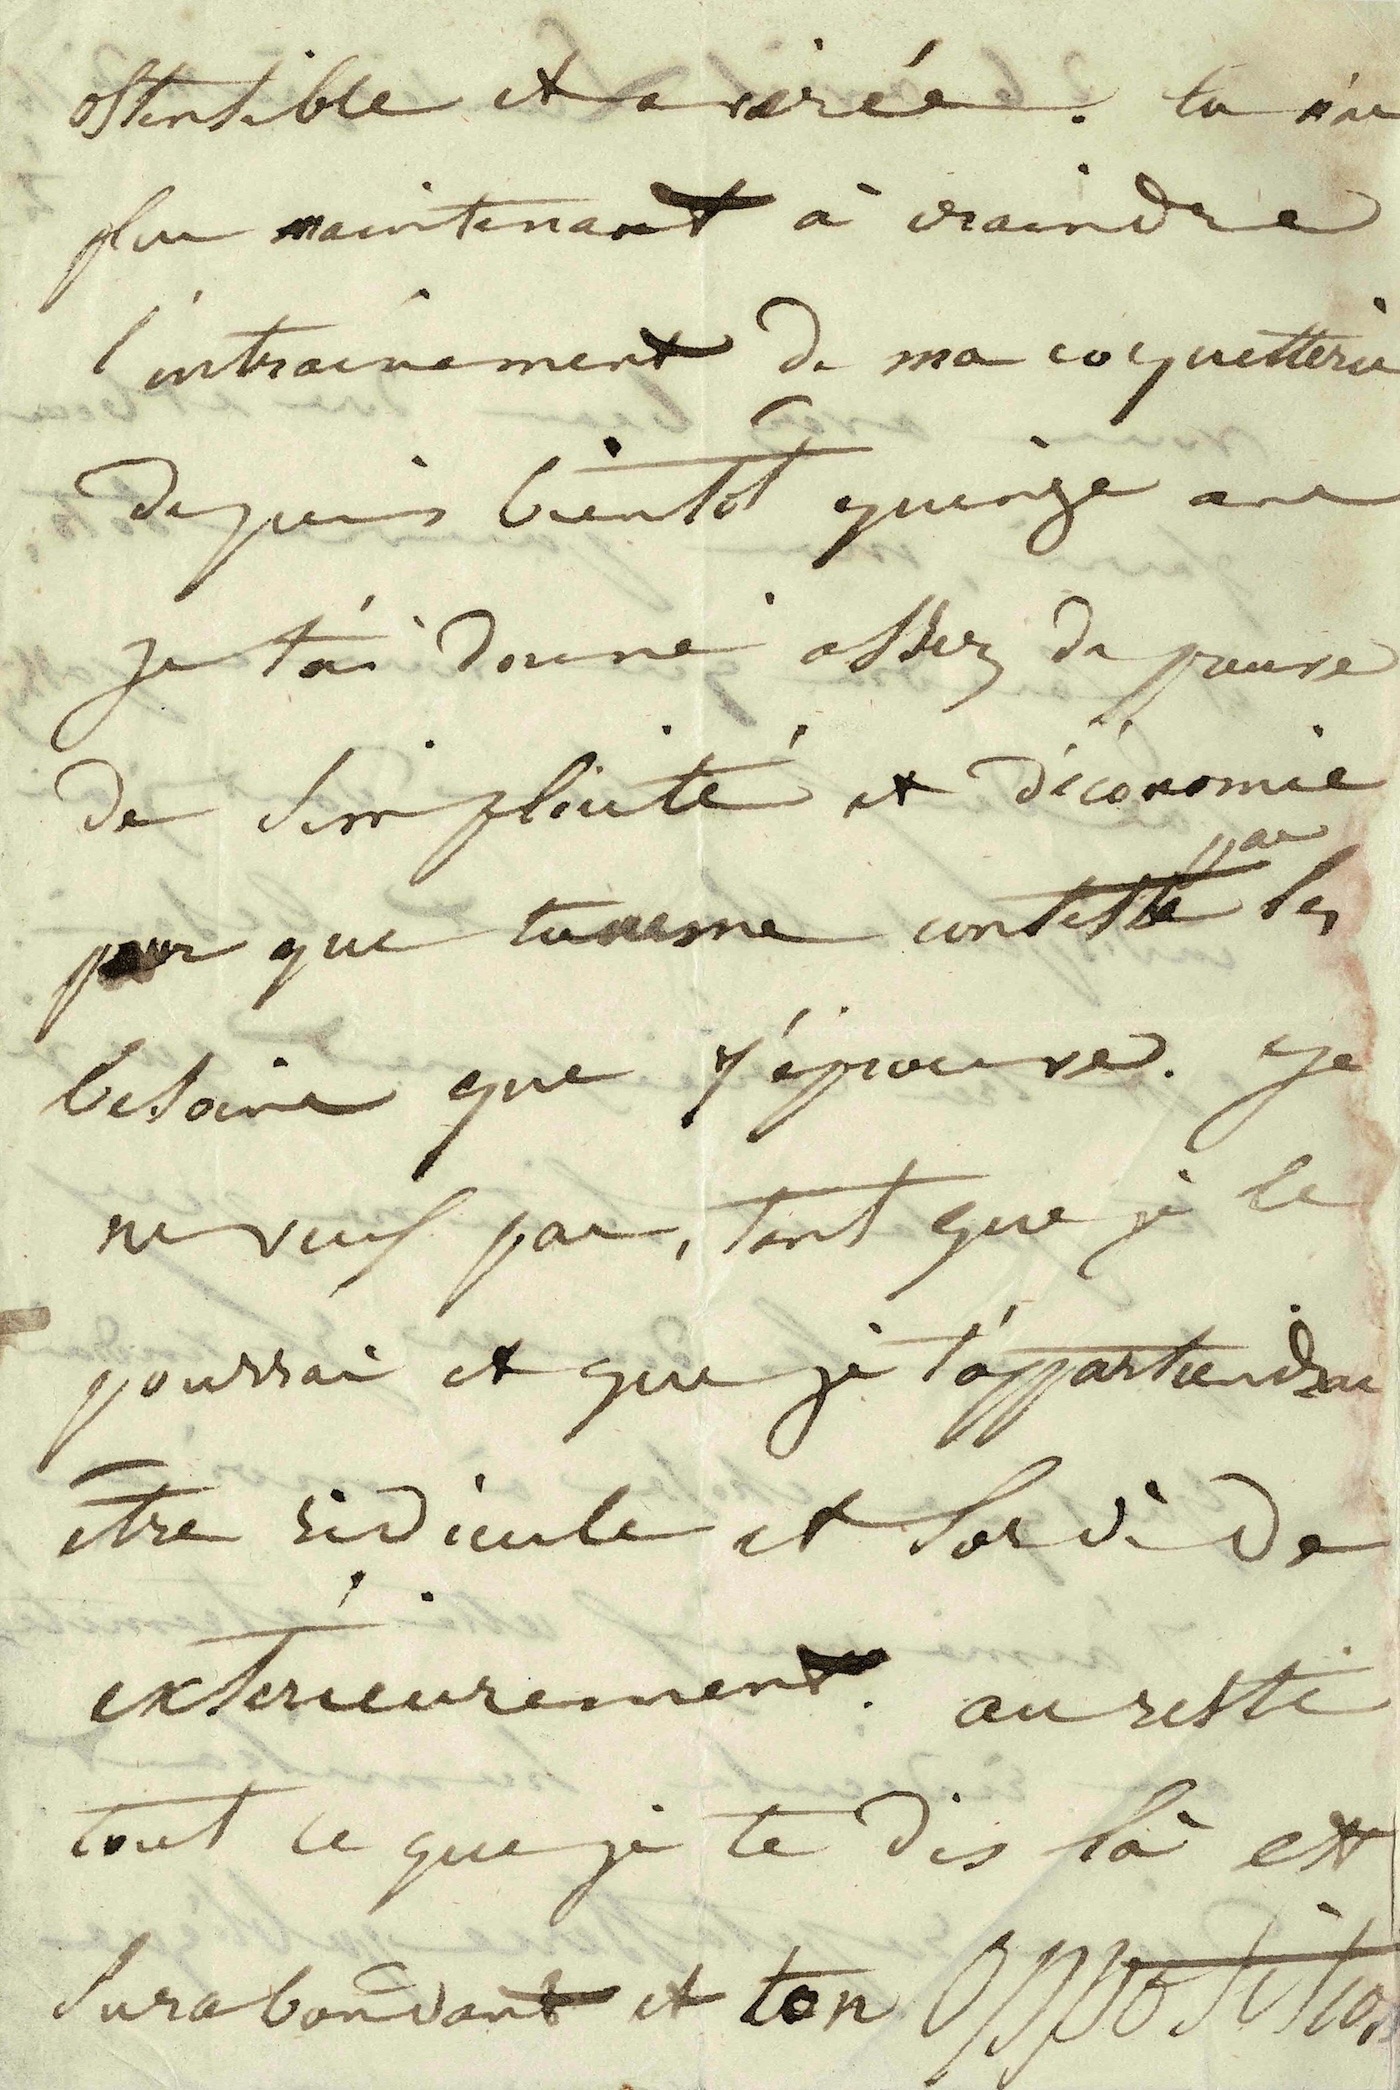 ostensible et avérée. tu n'as
plus maintenant à craindre
l'entraînement de ma coquetterie
depuis bientôt quinze ans
je t'ai donné assez de preuve
de simplicité et d'économie
pour que tu ne me conteste pas les
besoins que j'éprouve. Je
ne veux pas, tant que je le
pourrai et que je t'appartiendrai
être ridicule et sordide
extérieurement. au reste
tout ce que je te dis là est
surabondant et ton opposition